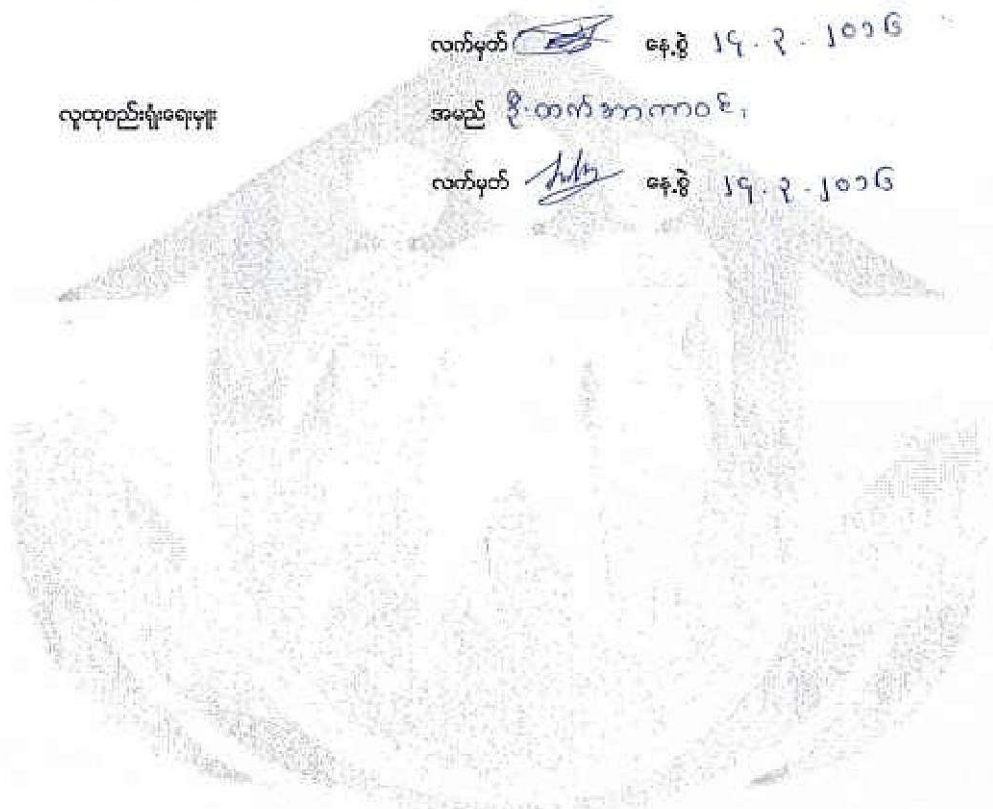 လက်မှတ် နေ့စွဲ ၂၄.၃.၂၀၁၆
လူထုစည်းရုံးရေးမှူး အမည် ဦးထက်အာကာဝင်း
လက်မှတ် နေ့စွဲ ၂၄.၃.၂၀၁၆